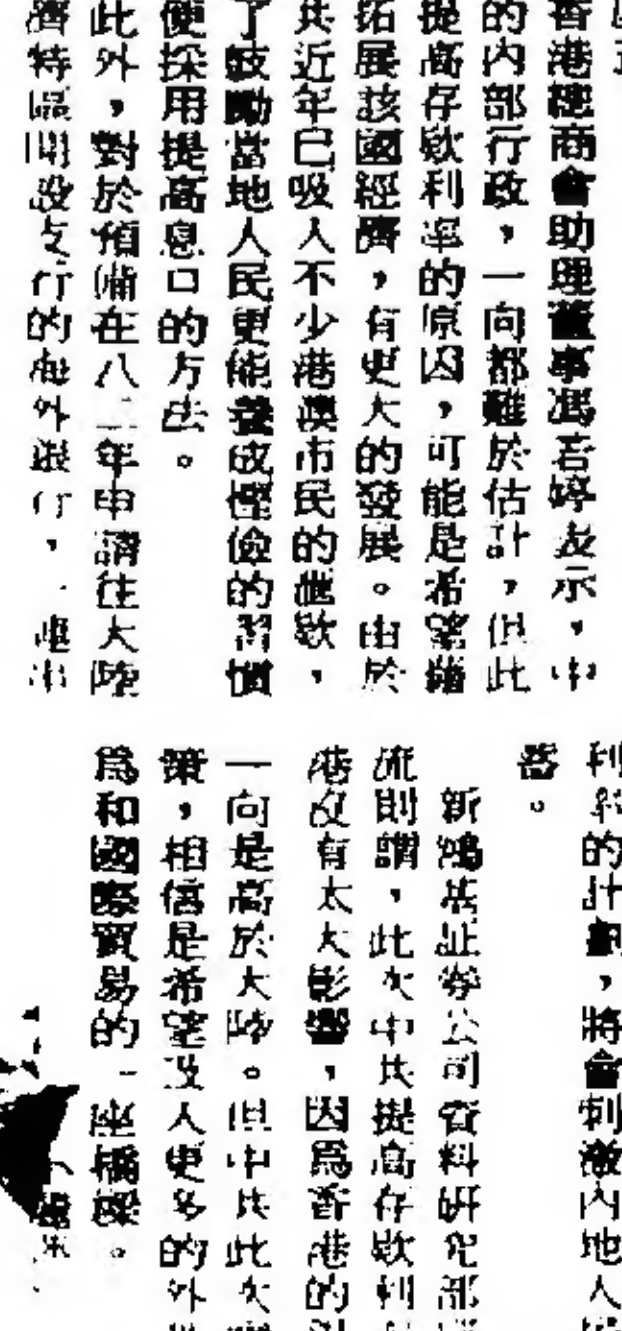 香港總商會助理董事馮若婷表示，中
的內部行政，一向都難於估計，但此
提高存欵利率的原因，可能是希望藉
拓展該國經濟，有更大的發展。由於
共近年已吸入不少港澳市民的匯欵，
了鼓勵當地人民更能養成慳儉的習慣
便採用提高息口的方法。
此外，對於預備在八二年申請往大陸
濟特區開設支行的海外銀行，一連串
利率的計劃，將會刺激內地人
蓄。
新鴻基証券公司資料研究部
流則謂，此次中共提高存欵利
港沒有太大影響，因爲香港的
一向是高於大陸。但中共此次
策，相信是希望吸入更多的外
爲和國際貿易的一座橋樑。